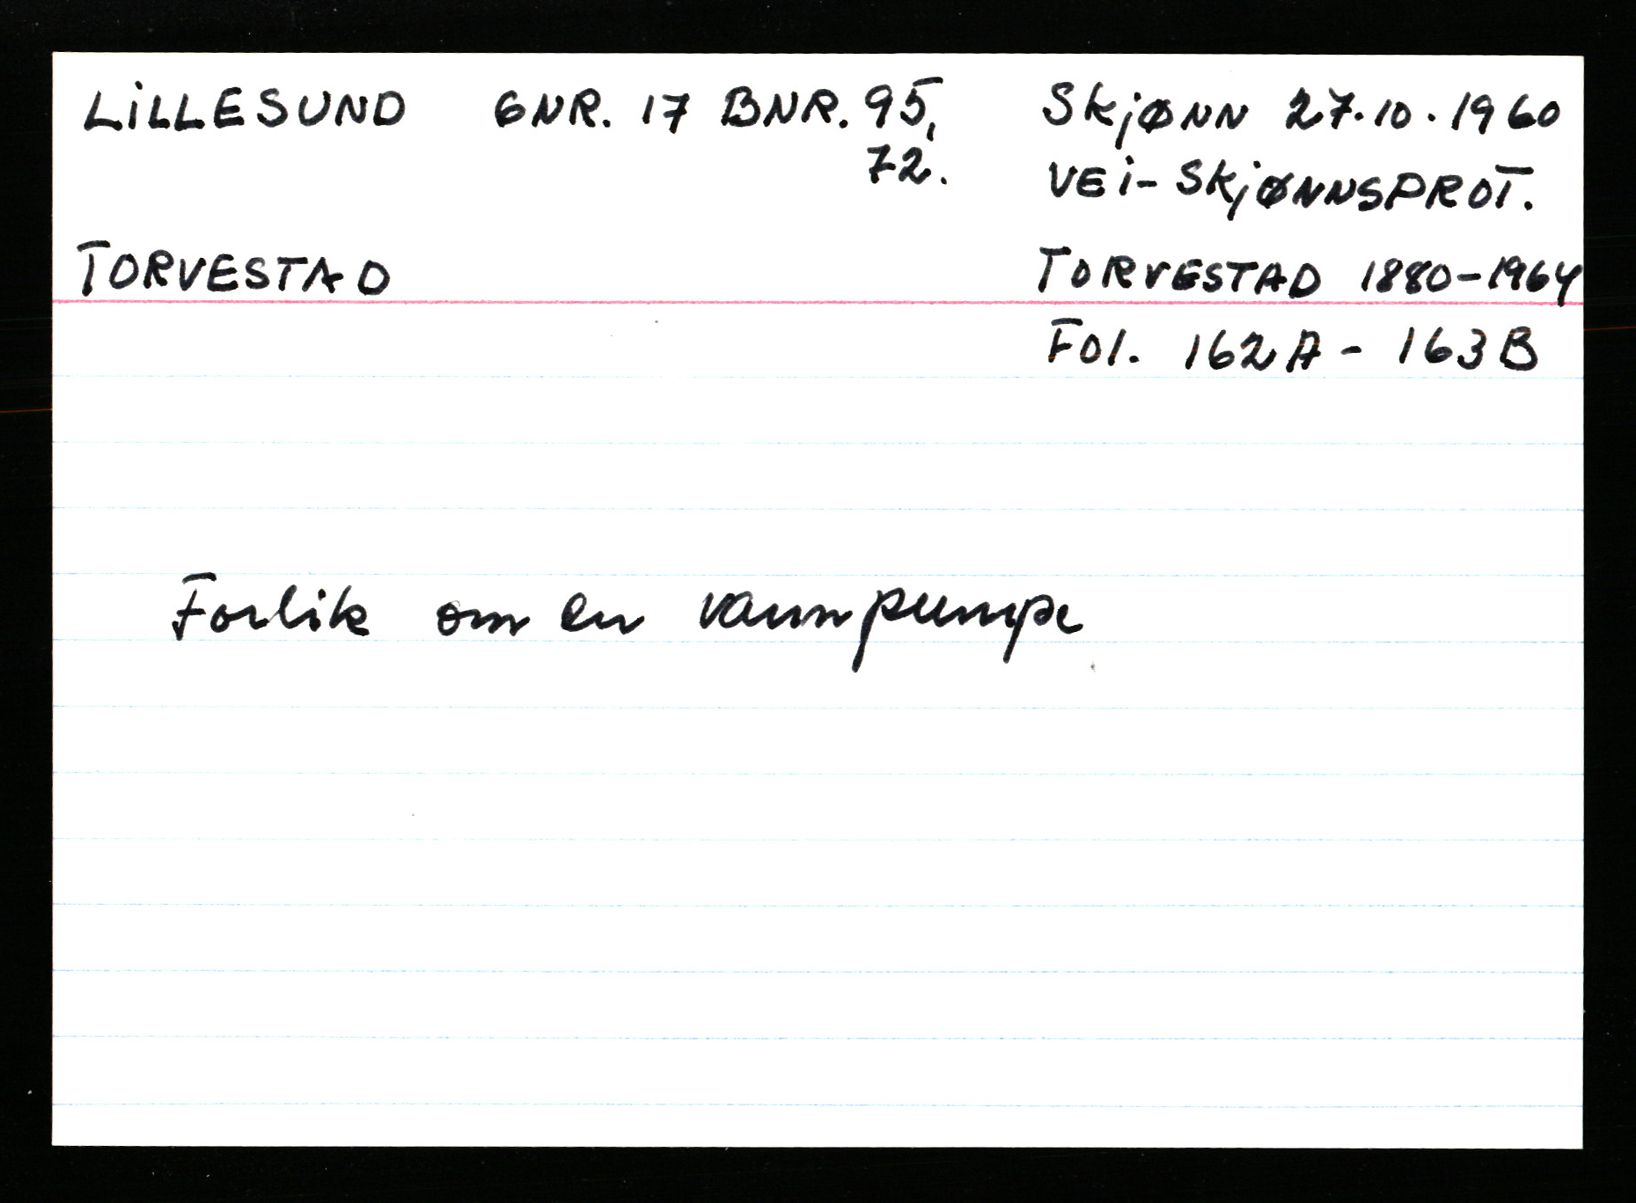 LILLESUND GNR. 17 BNR. 95, 72.
TORVESTAD
SKJØNN 27.10.1960
VEI-SKJØNNSPROT.
TORVESTAD 1880-1964
Fol. 162A - 163B
Forlik om en vannpumpe